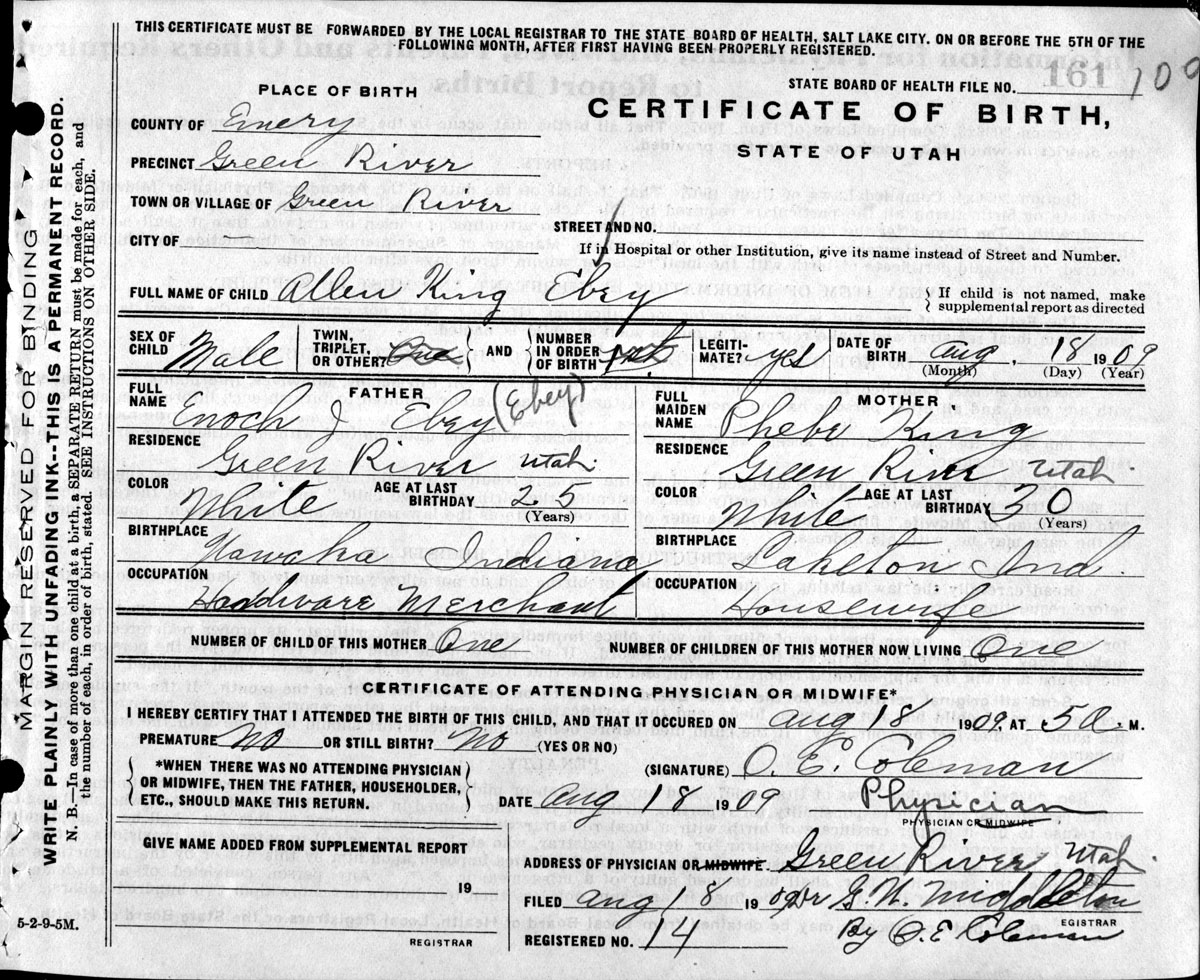 THIS CERTIFICATE MUST BE FORWARDED BY THE LOCAL REGISTRAR TO THE STATE BOARD OF HEALTH, SALT LAKE CITY. ON OR BEFORE THE 5TH OF THE
FOLLOWING MONTH, AFTER FIRST HAVING BEEN PROPERLY REGISTERED.
STATE BOARD OF HEALTH FILE NO. 161 109
PLACE OF BIRTH
CERTIFICATE OF BIRTH,
STATE OF UTAH
COUNTY OF Emery
PRECINCT Green River
TOWN OR VILLAGE OF Green River
STREET AND NO.
CITY OF
If in Hospital or other Institution, give its name instead of Street and Number.
FULL NAME OF CHILD Allen King Ebey
If child is not named, make
supplemental report as directed
SEX OF CHILD Male
TWIN, TRIPLET, OR OTHER? One
AND
NUMBER IN ORDER OF BIRTH
LEGITIMATE? yes
DATE OF BIRTH Aug. 18 1909
(Month) (Day) (Year)
FATHER
FULL NAME Enoch J Ebey (Ebey)
RESIDENCE Green River Utah
COLOR White
AGE AT LAST BIRTHDAY 25
(Years)
BIRTHPLACE Indiana
OCCUPATION Hardware Merchant
MOTHER
FULL MAIDEN NAME Phebe King
RESIDENCE Green River Utah
COLOR White
AGE AT LAST BIRTHDAY 30
(Years)
BIRTHPLACE Laketon Ind
OCCUPATION Housewife
NUMBER OF CHILD OF THIS MOTHER One
NUMBER OF CHILDREN OF THIS MOTHER NOW LIVING One
CERTIFICATE OF ATTENDING PHYSICIAN OR MIDWIFE*
I HEREBY CERTIFY THAT I ATTENDED THE BIRTH OF THIS CHILD, AND THAT IT OCCURED ON Aug 18 1909. AT 5 a. M.
PREMATURE No OR STILL BIRTH? No (YES OR NO)
*WHEN THERE WAS NO ATTENDING PHYSICIAN
OR MIDWIFE, THEN THE FATHER, HOUSEHOLDER,
ETC., SHOULD MAKE THIS RETURN.
(SIGNATURE) O. E. Coleman
DATE Aug 18 1909 Physician
PHYSICIAN OR MIDWIFE
GIVE NAME ADDED FROM SUPPLEMENTAL REPORT
19
REGISTRAR
5-2-9-5M.
ADDRESS OF PHYSICIAN OR MIDWIFE. Green River Utah.
FILED Aug 18 1909 G. W. Middleton
REGISTRAR
REGISTERED NO. 14 By O. E. Coleman
MARGIN RESERVED FOR BINDING
WRITE PLAINLY WITH UNFADING INK--THIS IS A PERMANENT RECORD.
N. B.—In case of more than one child at a birth, a SEPARATE RETURN must be made for each, and
the number of each, in order of birth, stated. SEE INSTRUCTIONS ON OTHER SIDE.